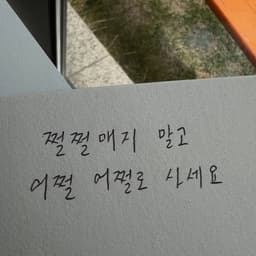 쩔쩔매지 말고
어쩔 어쩔로 사세요